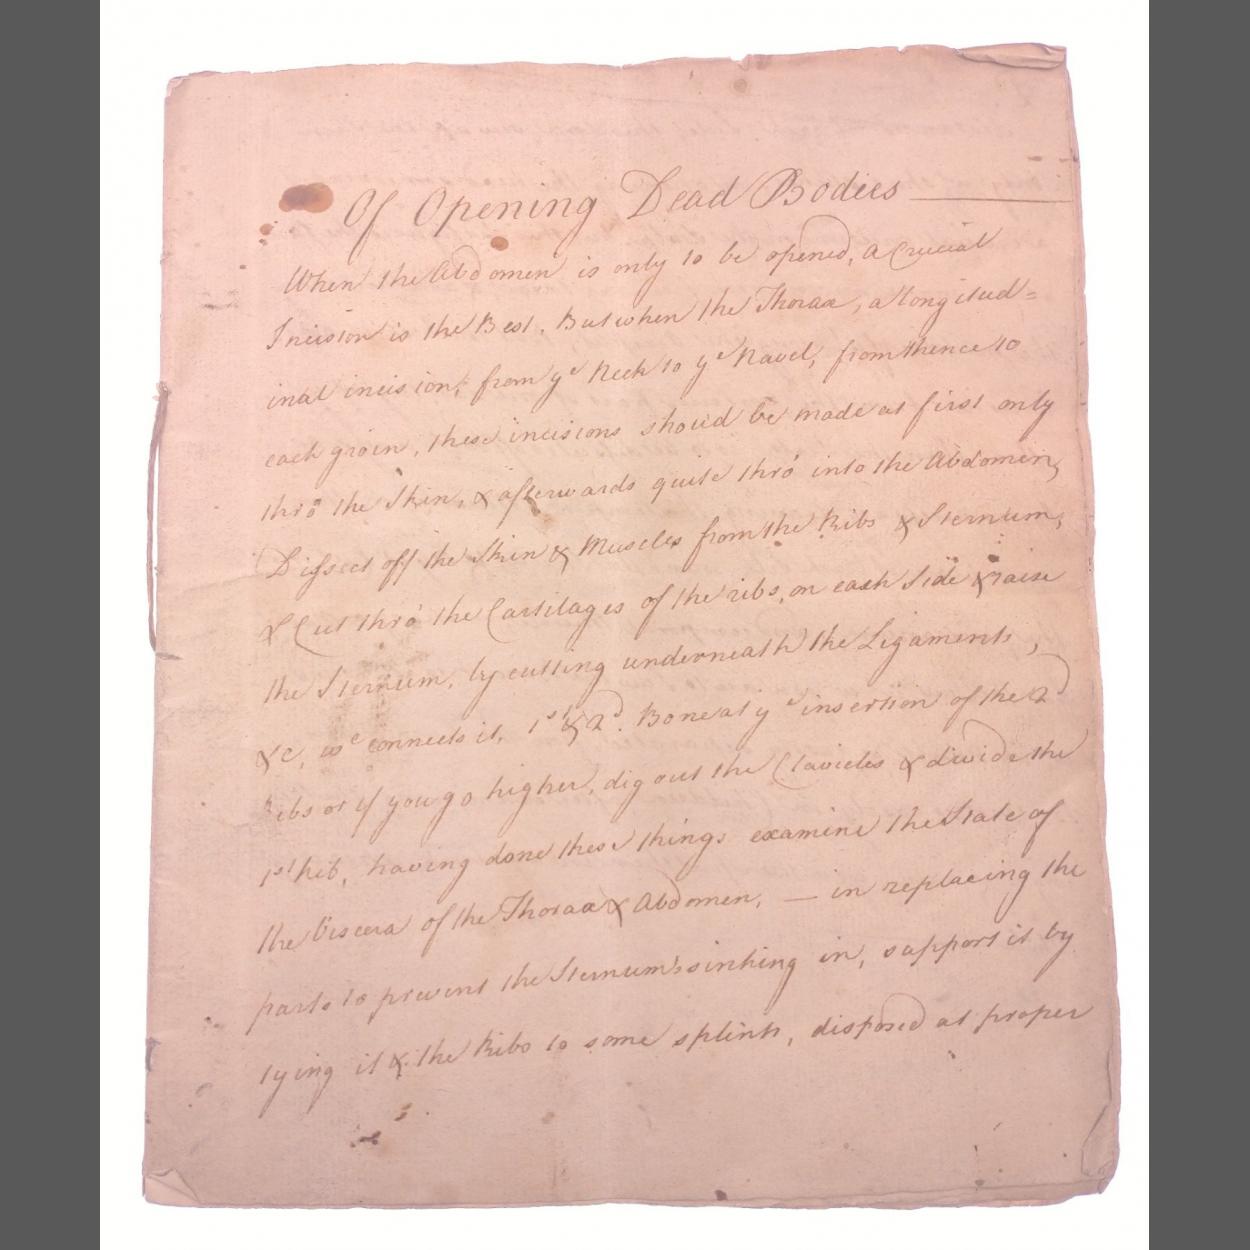 Of Opening Dead Bodies
When the Abdomen is only to be opened, a Crucial
Incision is the Best, But when the Thorax, a longitud=
inal incision, from yᵉ Neck to yᵉ Navel, from thence to
each groin, these incisions shou'd be made at first only
thrō the Skin, & afterwards quite thrō into the Abdomen,
Dissect off the Skin & Muscles from the Ribs & Sternum,
& Cut thrō the Cartilages of the ribs, on each Side & raise
the Sternum, by cutting underneath the Ligaments,
&c, wᶜ connects it, 1ˢᵗ & 2ᵈ. Bone at yᵉ insertion of the 2ᵈ
Ribs or if you go higher, dig out the Clavicles & divide the
1ˢᵗ Rib, having done these things examine the State of
the Viscera of the Thorax & Abdomen, — in replacing the
parts to prevent the Sternum's sinking in, support it by
tying it & the Ribs to some splints, disposed at proper